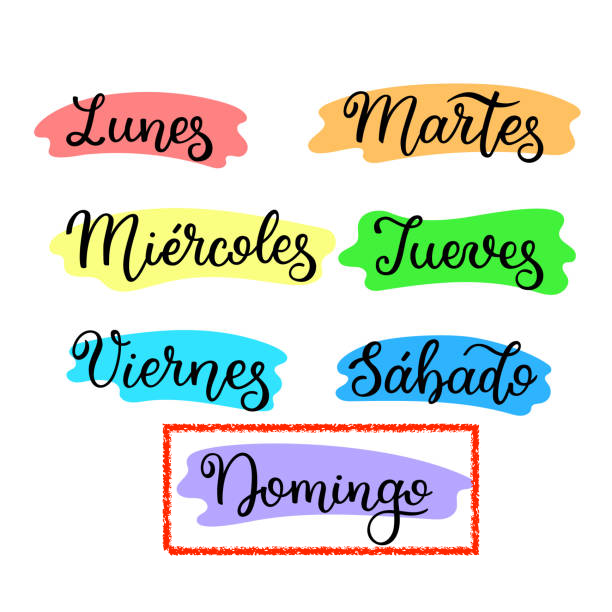 Lunes Martes
Miércoles Jueves
Viernes Sábado
Domingo